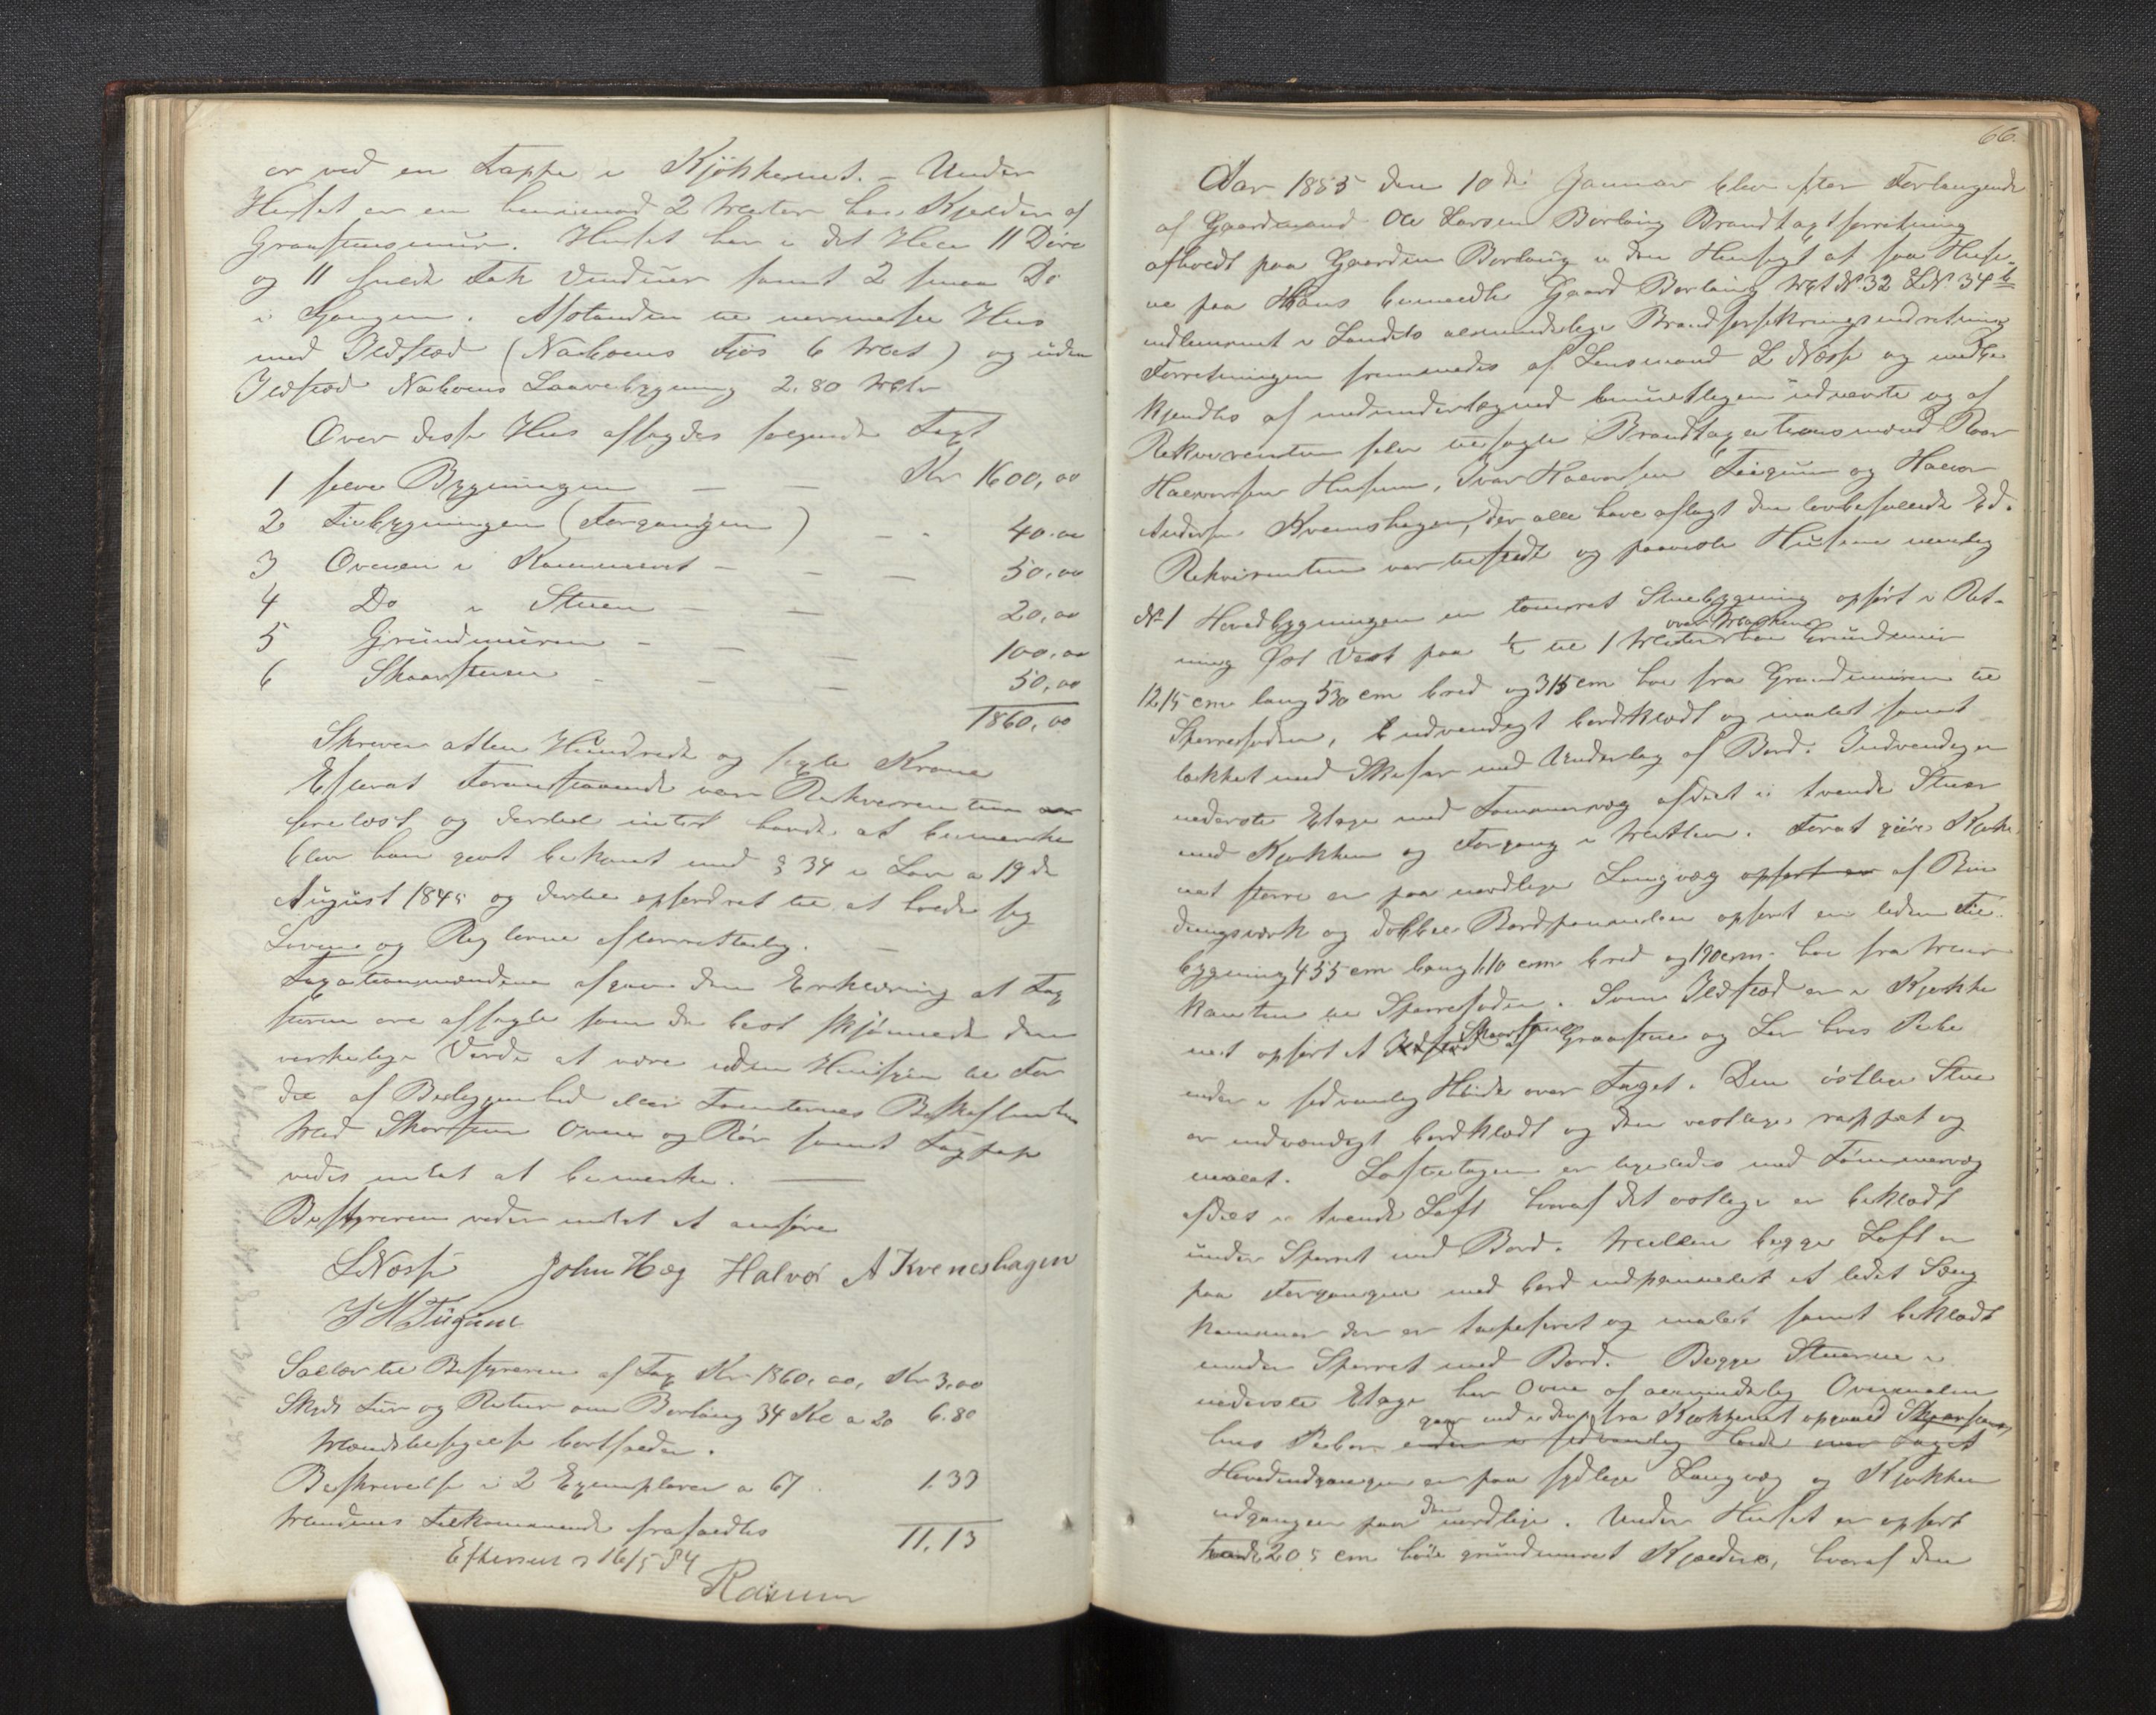 er ved en Trappe i Kjøkkenet. – Under
Huset er en henimod 2 Meter høi Kjelder af
Graastensmur. Huset har i det Hele 11 Døre
og 11 Fag Vinduer samt 2 smaa Do
i Gangen. Afstanden til nærmeste Hus
med Ildsted (Naboens Fjøs 6 Met) og uden
Ildsted Naboens Laavebygning 2.80 Meter
Over disse Hus afsagdes følgende Taxt
1 selve Bygningen — — Kr 1600,00
2 Tilbygningen (Forgangen) — - 40.00
3 Ovnen i Kammeret — — — 50,00
4 Do i Stuen — — 20,00
5 Grundmuren — — — 100,00
6 Skorstenen - — — 50,00
1860,00
Skriver atten Hundrede og sexti Kroner
Efterat Foranstaaende var Rekvirenten
forelæst og dertil intet havde at bemærke
blev han gjort bekjent med § 34 i Lov a 19de
August 1845 og dertil opfordret til at holde sig
Loven og Reglerne efterrettelig. —
Taxationsmændene afgav den Erklæring at Tax
terne ere afsagte som de bedst skjønnede den
virkelige Værdi at være uden Hensyn til For
del af Beliggenhed eller Tomternes Beskaffenhed
Med Skorsten Ovne og Rør samt
vides intet at bemærke. —
Bestyreren veder intet at anføre
L Næss John Hæg Halvor A Kveneshagen
I H Teigum
Salær til Bestyreren af Tax Kr 1860,00, Kr 3,00
Skyds Tur og Retur om Borlaug 34 Kl a 20 6.80
Mændstilsigelse bortfalder.
Beskrivelse i 2 Exemplarer a 67 1.33
Mændenes Tilkommende frafaldtes
11.13
Efterseet 16/5 84
Rasum
66.
Aar 1885 den 10de Januar blev efter Forlangende
af Gaardmand Ole Larsen Borlaug Brandtaxtforretning
afholdt paa Gaarden Borlaug i den Hensigt at faa Huse-
ne paa Hans benævnte Gaard Borlaug Mat No. 32 LNo 34 b
indlemmet i Landets almindelige Brandforsikringsindretning
Forretningen fremmedes af Lensmand L Næss og med
kjendtes af medundertegnede ennestligen udnævnte og af
Rekvirenten selv tilsagte Brandtaxationsmænd Roar
Halvorsen Husum, Ivar Halvorsen Teigum og Halvor
Andersen Kvemshagen, der alle have aflagt den lovbefalede Ed.
Rekvirenten var tilstede og paaviste Husene nemlig
No 1 Hovedbygningen en tømret Stuebygning opført i Ret-
over Marken
ning Øst Vest paa ½ til 1 Meter høi Grundmur
1215 cm lang 530 cm bred og 315 cm høi fra Grundmuren til
Sperrefoden, udvendigt bordklædt og malet samt
tækket med Skifer med Underlag af Bord. Indvendig er
nederste Etage med Tømmervæg afdelt i tvende Stuer
med Kjøkken og Forgang i Midten. Forat gjøre Kjøke
net større er paa nordlige Langvæg opført er af Bin
dingsværk og dobbel Bordpanneler opført en liden Til
bygning 455 cm lang 110 cm bred og 190 cm. høi fra Mur
kanten til Sperrefoden. Som Ildsted er i Kjøkke
net opført et Ildsted Skorsten af Graasten og Ler hvis Pibe
ender i sedvanlig Høide over Taget. Den østlige Stue
er indvændigt bordklædt og den vestlige rappet og
malet. Loftsetagen er ligeledes med Tømmervæg
afdelt i tvende Loft hvoraf det østlige er beklædt
under Sperret med Bord. Mellem begge Loft er
paa Forgangen med bord indpannelet et lidet Seng
kammer der er tapeseret og malet samt beklædt
under Sperret med Bord. Begge Stuerne i
nederste Etage har Ovne af almindelig
gaar ind i den fra Kjøkkenet opgaaende Skorsten
hvis Piber ender i sedvanlig Høide over Taget
Hovedindgangen er paa sydlige Langvæg og Kjøkken
udgangen paa den nordlige. Under Huset er opført
tvende 205 cm høie grundmuret Kjældere, hvoraf den